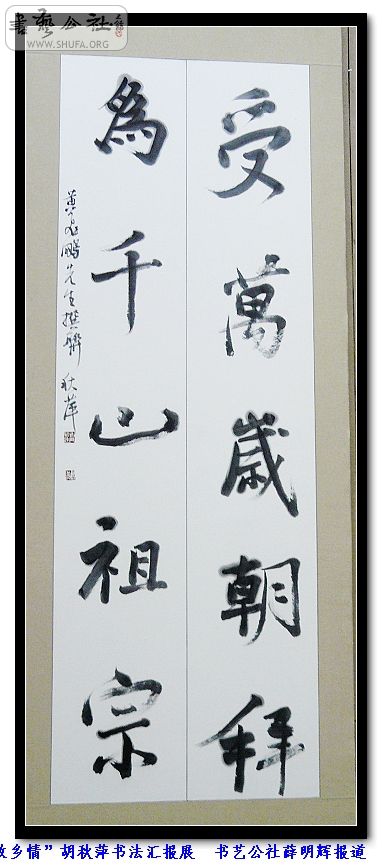 書艺公社
WWW.SHUFA.ORG
受萬歲朝拜
為千山祖宗
先生撰聯 秋萍
故乡情”胡秋萍书法汇报展 书艺公社薛明辉报道